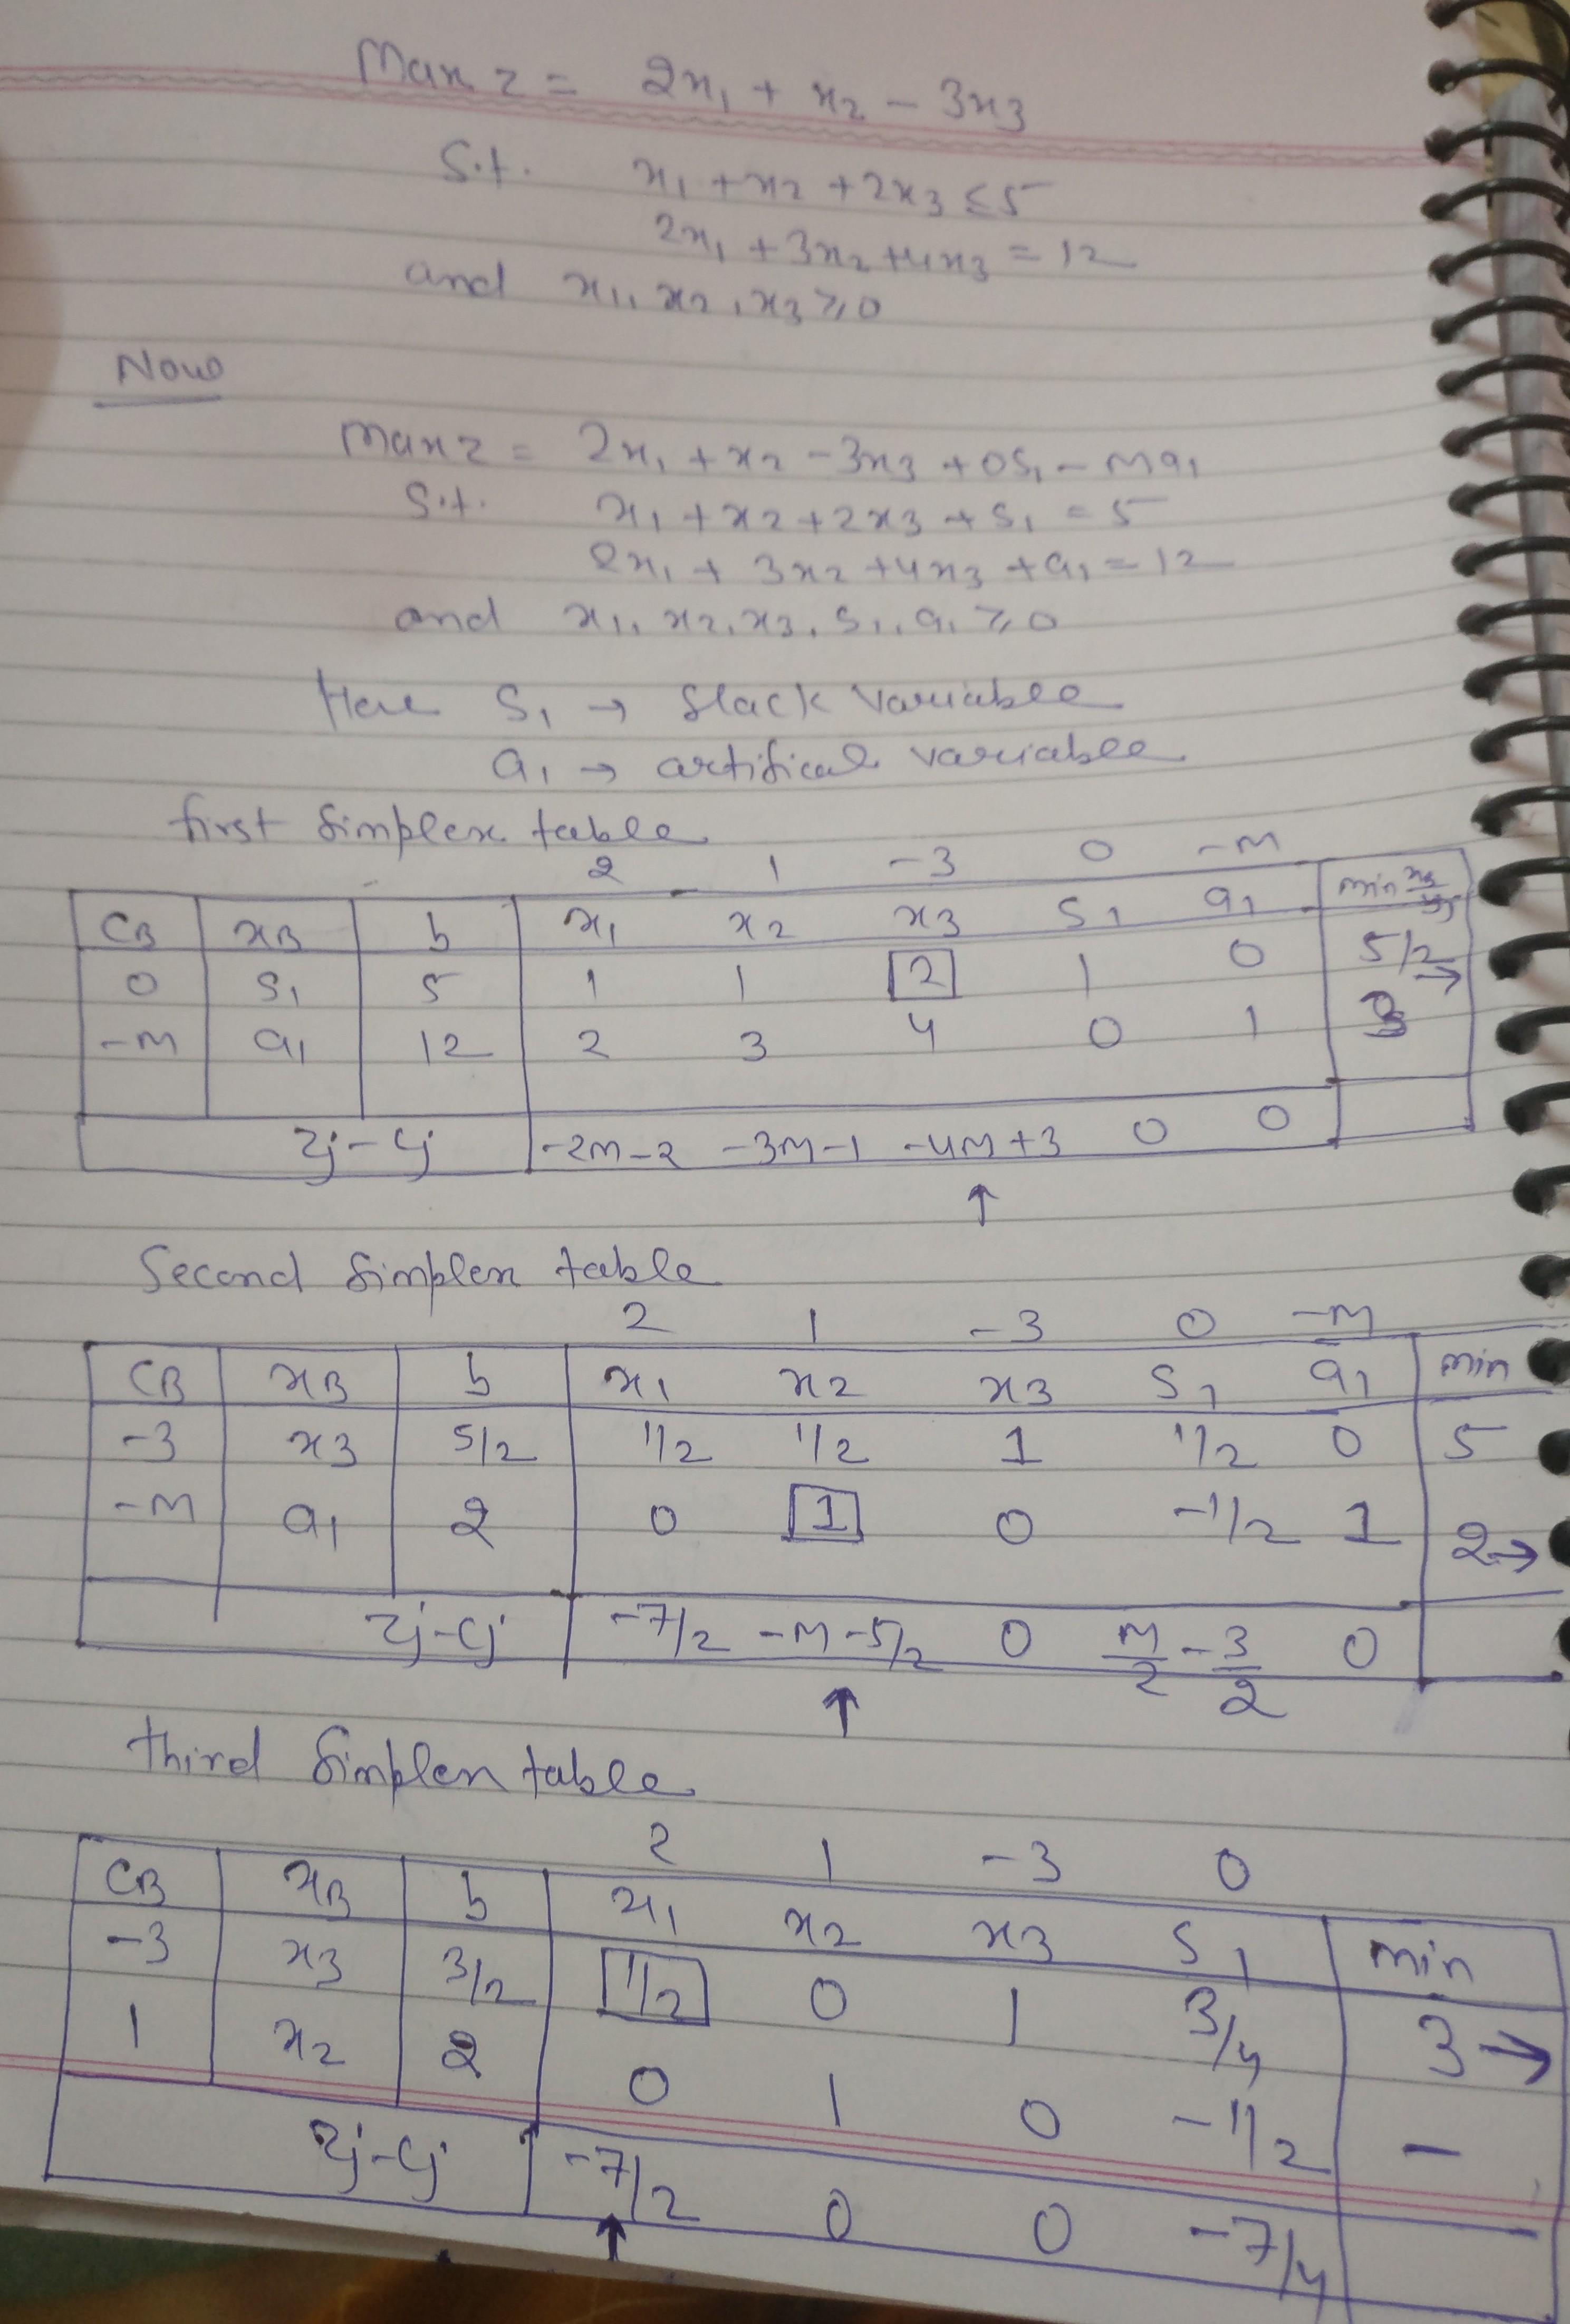 Max z = 2x₁ + x₂ - 3x₃
S.t. x₁ + x₂ + 2x₃ ≤ 5
2x₁ + 3x₂ + 4x₃ = 12
and x₁, x₂, x₃ ≥ 0
Now
Max z = 2x₁ + x₂ - 3x₃ + 0S₁ - Ma₁
S.t. x₁ + x₂ + 2x₃ + S₁ = 5
2x₁ + 3x₂ + 4x₃ + a₁ = 12
and x₁, x₂, x₃, S₁, a₁ ≥ 0
Here S₁ → Slack variable
a₁ → artifical variable
first Simplex table
2 1 -3 0 -M
CB xB b x₁ x₂ x₃ S₁ a₁ min
0 S₁ 5 1 1 2 1 0 5/2 →
-M a₁ 12 2 3 4 0 1 3
zj-cj -2M-2 -3M-1 -4M+3 0 0
↑
Second Simplex table
2 1 -3 0 -M
CB xB b x₁ x₂ x₃ S₁ a₁ min
-3 x₃ 5/2 1/2 1/2 1 1/2 0 5
-M a₁ 2 0 1 0 -1/2 1 2→
zj-cj -7/2 -M-5/2 0 M/2 - 3/2 0
↑
third Simplex table
2 1 -3 0
CB xB b x₁ x₂ x₃ S₁ min
-3 x₃ 3/2 1/2 0 1 3/4 3→
1 x₂ 2 0 1 0 -1/2 -
zj-cj -7/2 0 0 -7/4
↑